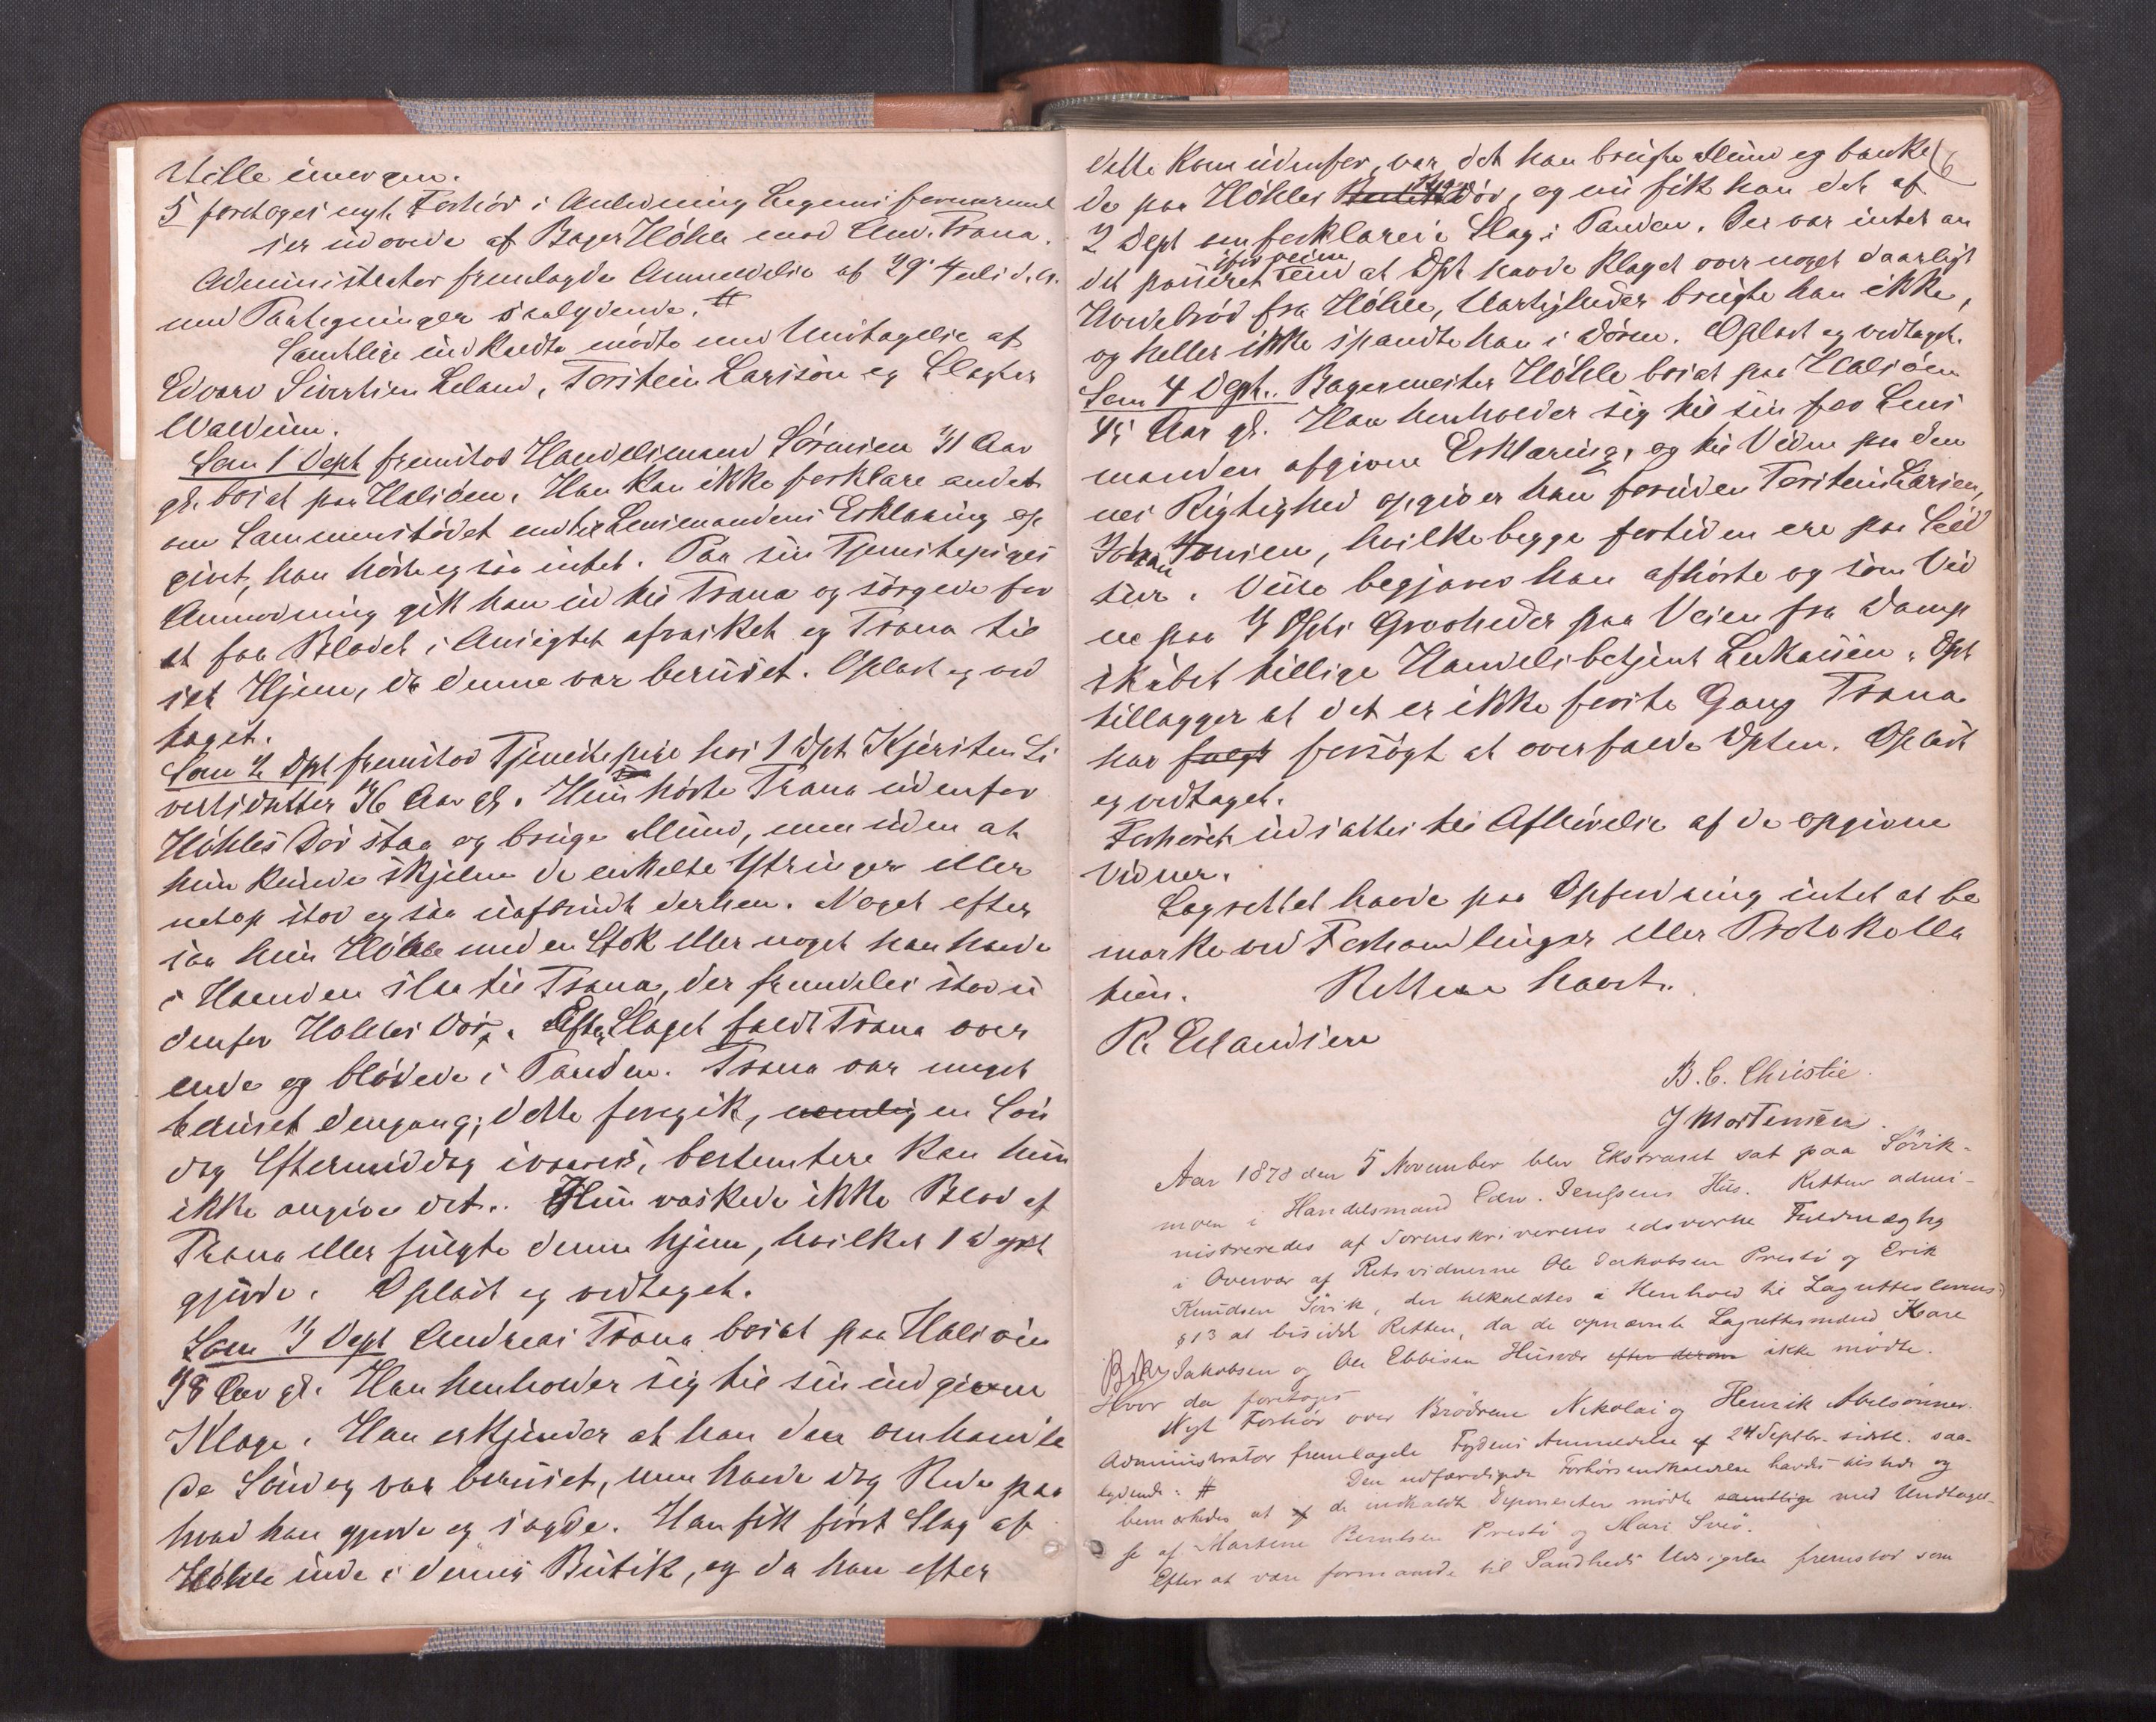 Stille imorgen.
5 foretoges nyt Forhör i Anledning Legemsfornærmel
ser udövede af Bager Höhle mod And. Trana.
Administrator fremlagde Anmeldelse af 29 Juli d.A.
med Paategninger saalydende. #
Samtlige indkaldte mödte med Undtagelse af
Edvard Sivertsen Leland, Torstein Larssön og Slagter
Waldum.
Som 1 Dept fremstod Handelsmand Sörensen 31 Aar
gl. bosat paa Halsöen. Han kan ikke forklare andet
om Sammenstödet end til Lensmandens Erklæring op
givet, han hörte og saa intet. Paa sin Tjenestepiges
Anmodning gik han ud til Trana og sörgede for
at faa Blodet i Ansigtet afvasket og Trana til
sit Hjem, da denne var beruset. Oplæst og ved
taget.
Som 2 Dpt fremstod Tjenestepige hos 1 Dpt Kjersten Si
vertsdatter 36 Aar gl. Hun hörte Trana udenfor
Höhles Dör staa og bruge Mund, men uden at
hun kunde skjelne de enkelte Ytringer eller
netop stod og saa uafbrudt derhen. Noget efter
saa hun Höhle med en Stok eller noget han havde
i Haanden slaa til Trana, der fremdeles stod u
denfor Höhles Dör. Efter Slaget faldt Trana over
ende og blödede i Panden. Trana var meget
beruset dengang; dette foregik, nemlig en Sön
dag Eftermiddag ivaares, bestemtere kan hun
ikke angive det.. Hun vaskede ikke Blod af
Trana eller fulgte denne hjem, hvilket 1 Dept
gjorde. Oplæst og vedtaget.
Som 3 Dept Andreas Trana bosat paa Halsöen
38 Aar gl. Han henholder sig til sin indgivne
Klage. Han erkjender at han den omhand le
de Söndag var beruset, men havde dog Rede paa
hvad han gjorde og sagde. Han fik först Slag af
Höhle inde i dennes Butik, og da han efter
6
dette kom udenfor, var det han brugte Mund og banke
de paa Höhles Butik Dör, og nu fik han det af
2 Dept omforklarede Slag i Panden. Der var intet an
det passeret end at Dpt havde klaget over noget daarligt
Hvedebröd fra Höhle, Uartigheder brugte han ikke,
og heller ikke spændte han i Dören. Oplæst og vedtaget.
Som 4 Dept.. Bagermester Höhle bosat paa Halsöen
45 Aar gl. Han henholder sig til sin for Lens
manden afgivne Erklæring, og til Vidne paa den
nes Rigtighed opgiver han foruden Torstein Larsen,
Johan Jonsen, hvilke begge fortiden ere paa Sild
tur. Disse begjæres han afhörte og som Vid
ne paa 3 Dpts Grovheder paa Veien fra Damp
skibet tillige Handelsbetjent Lukassen. Dpt
tillægger at det er ikke förste Gang Trana
har fulgt forsögt at overfalde Dpten. Oplæst
og vedtaget.
Forhöret udsattes til Afhörelse af de opgivne
Vidner.
Lagrettet havde paa Opfordring intet at be
mærke ved Forhandlinger eller Protokolla
tion. Retten hævet.
R. Erlandsen
B. C. Christie.
J Mortensen.
Aar 1878 den 5 November blev Ekstraret sat paa Sövik-
moen i Handelsmand Edw. Jenssens Hus. Retten admi-
nistreredes af Sorenskriverens edsvorne Fuldmægtig
i Overvær af Retsvidnerne Ole Jakobsen Prestö og Erik
Knudsen Sövik, der tilkaldtes i Henhold til Lagretteslovens
§ 13 at bisidde Retten, da de opnævnte Lagrettesmænd Kare
Jakobsen og Ole Ebbesen Husvær efter derom ikke mödte.
Hvor da foretoges
Nyt Forhör over Brödrene Nikolai og Henrik Abelsönner.
Administrator fremlagde Fogdens Anmeldelse af 24 Septbr. sidstl. saa-
lydende: #
Den udfærdigede Forhörsindkaldelse havdes tilstede og
bemærkedes at de indkaldte Deponenter mödte samtlige med Undtagel-
se af Martine Berntsen Prestö og Mari Sveö.
Efter at være formanede til Sandheds Udsigelse fremstod som